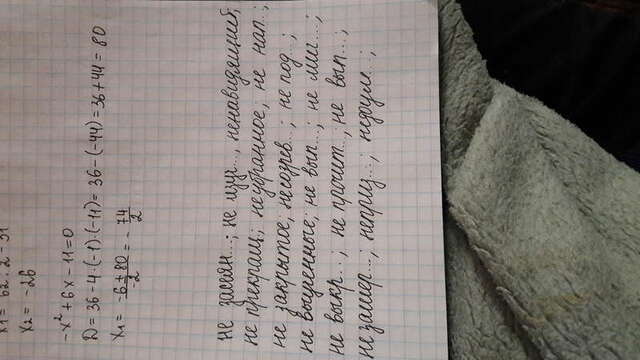 x₁ = 62 : 2 = 31
x₂ = -26
-x² + 6x - 11 = 0
D = 36 - 4 · (-1) · (-11) = 36 - (-44) = 36 + 44 = 80
x₁ = -6 ± 80 / -2 = - 74 / 2
не засеян...; не изуч..., ненавидящий;
не прекращ; неубранное; не нап...;
не закрытое; несозрев...; не под...;
не выученные; не вып...; не миг...;
не выкр...; не прочит...; не вып...;
не замер...; неприз...; недоум...;